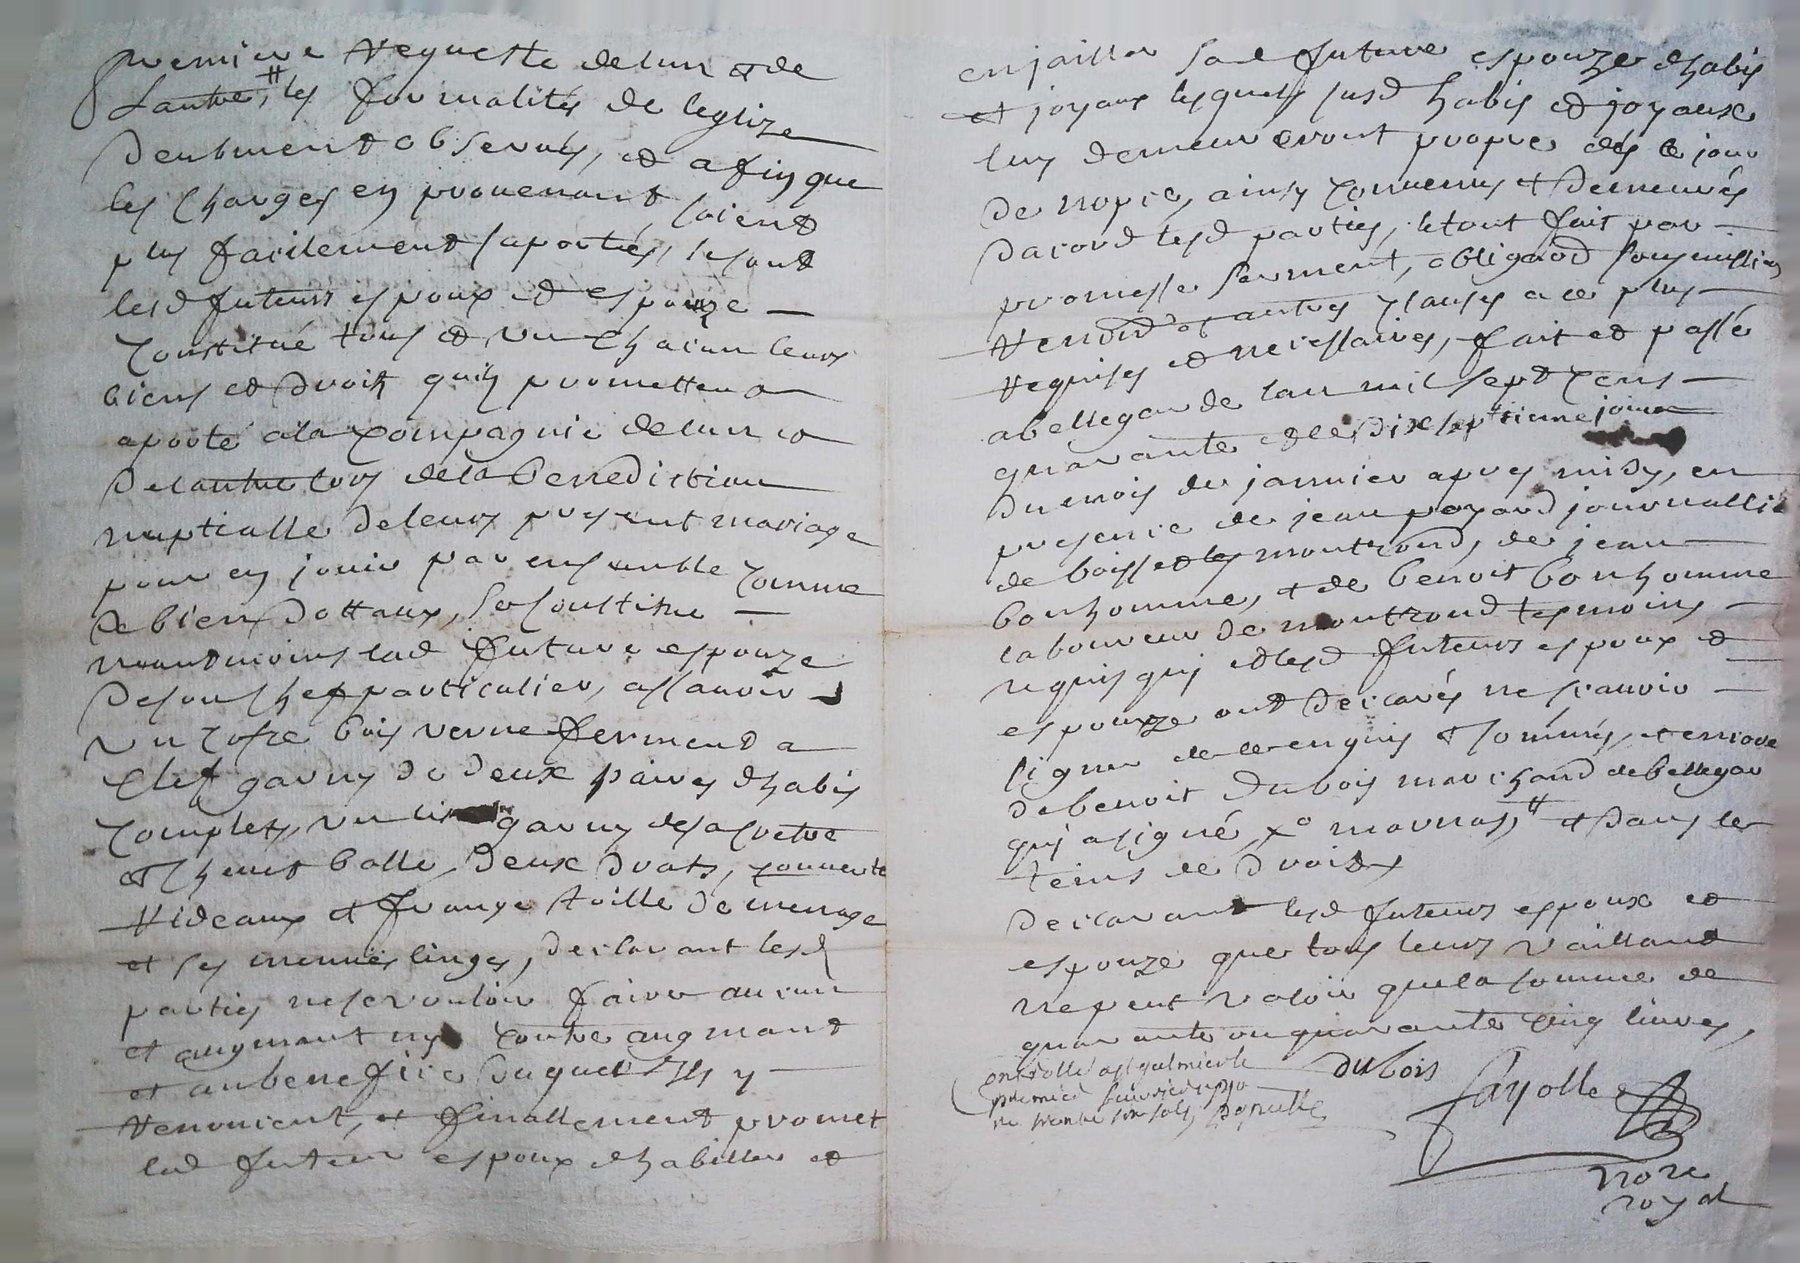 premiere requeste de lun et de
Lautre, les formalités de leglize
deubment observés, et afin que
les charges en provenant soient
plus facilement suportés, se sont
lesd futeurs espoux et espouze
constitué tous et un chacun leurs
biens et droits quils promettent
aporté a la compagnie de lun et
de lautre lors de la benediction
nuptialle de leurs present mariage
pour en jouir par ensemble comme
de bien dottaux, se constitue
neantmoins lad future espouze
de son chef particulier, assavoir
un cofre bois verne fermend a
clef garny de deux paires dhabis
complets, un lit garny de sa coetre
et chevet balle, deux drats, couverte
rideaux et frange toille de menage
et ses menües linges, declarant lesd
parties ne se vouloir faire aucun
et augmant ny contre augmant
et au benefice duquel ils y
renoncent, et finallement promet
led futeur espoux dhabiller et
enjailler sad future espouze dhabis
et joyaux lesquels susd habis et joyaux
luy demeureront propre dés le jour
de nopces, ainsy convenus et demeurés
dacord lesd parties, le tout fait par
promesse serment, obligaod soumissions
renond et autres clauses a ce plus
requises et necessaires, fait et passé
a bellegarde lan mil sept cens
quarante et le dix septieme jour
du mois de janvier apres midy, en
presence de jean poyard journallier
de boisset les montrond, de jean
bonhomme, et de benoit bonhomme
laboureur de montrond tesmoins
requis qui et lesd futeurs espoux et
espouze ont declarés ne scauoir
signer de ce enquis et sommés, et encore
de benoit dubois marchand de bellegarde
qui a signé, et dans le
tems de droit
declarant lesd futeurs espoux et
espouze que tous leurs vaillant
ne peut valoir que la somme de
quarante ou quarante cinq livres,
Dubois
fayolle
controllé a st galmier le
premier fevrier 1740
re trente six sols
nore
royal